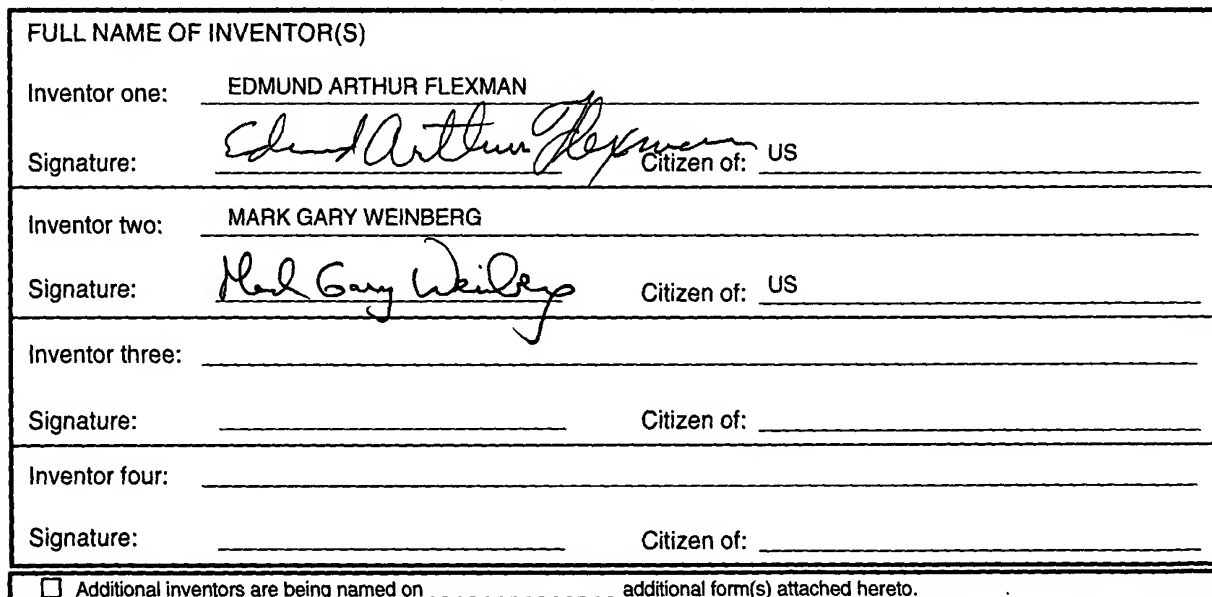 FULL NAME OF INVENTOR(S)
Inventor one: EDMUND ARTHUR FLEXMAN
Signature: Edmund Arthur Flexman Citizen of: US
Inventor two: MARK GARY WEINBERG
Signature: Mark Gary Weinberg Citizen of: US
Inventor three:
Signature: Citizen of:
Inventor four:
Signature: Citizen of:
☐ Additional inventors are being named on additional form(s) attached hereto.